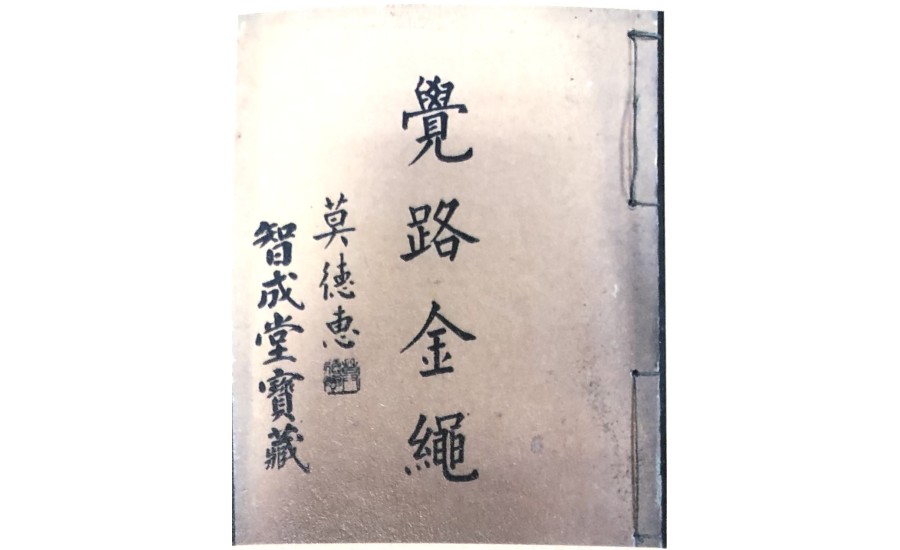 覺路金繩
莫德惠
智成堂寶藏